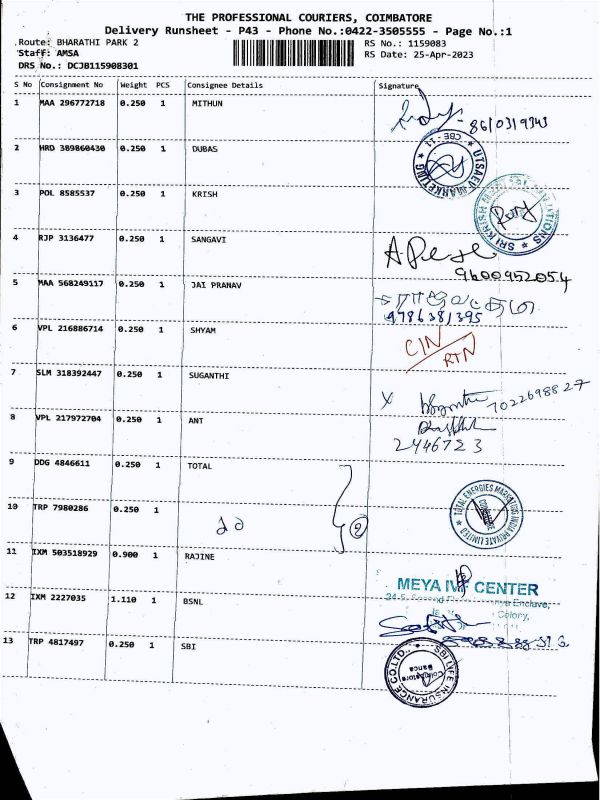 THE PROFESSIONAL COURIERS, COIMBATORE
Delivery Runsheet - P43 - Phone No.:0422-3505555 - Page No.:1
Route: BHARATHI PARK 2
RS No.: 1159083
Staff: AMSA
RS Date: 25-Apr-2023
DRS No.: DCJB115908301
S No Consignment No Weight PCS Consignee Details Signature
1 MAA 296772718 0.250 1 MITHUN
8610319343
2 HRD 389860430 0.250 1 DUBAS
UTSAEV MARKETING CBE - 11
3 POL 8585537 0.250 1 KRISH
SRI KRISH
4 RJP 3136477 0.250 1 SANGAVI
9600952054
5 MAA 568249117 0.250 1 JAI PRANAV
9786381395
6 VPL 216886714 0.250 1 SHYAM
CIN/RTN
7 SLM 318392447 0.250 1 SUGANTHI
7022698827
8 VPL 217972704 0.250 1 ANT
2446723
9 DDG 4846611 0.250 1 TOTAL
TOTAL ENERGIES MARKETING INDIA PRIVATE LIMITED
10 TRP 7980286 0.250 1
2
11 IXM 503518929 0.900 1 RAJINE
MEYA IVF CENTER
Enclave,
Colony,
12 IXM 2227035 1.110 1 BSNL
13 TRP 4817497 0.250 1 SBI
SBI LIFE INSURANCE CO.LTD.
Coimbatore
Banca